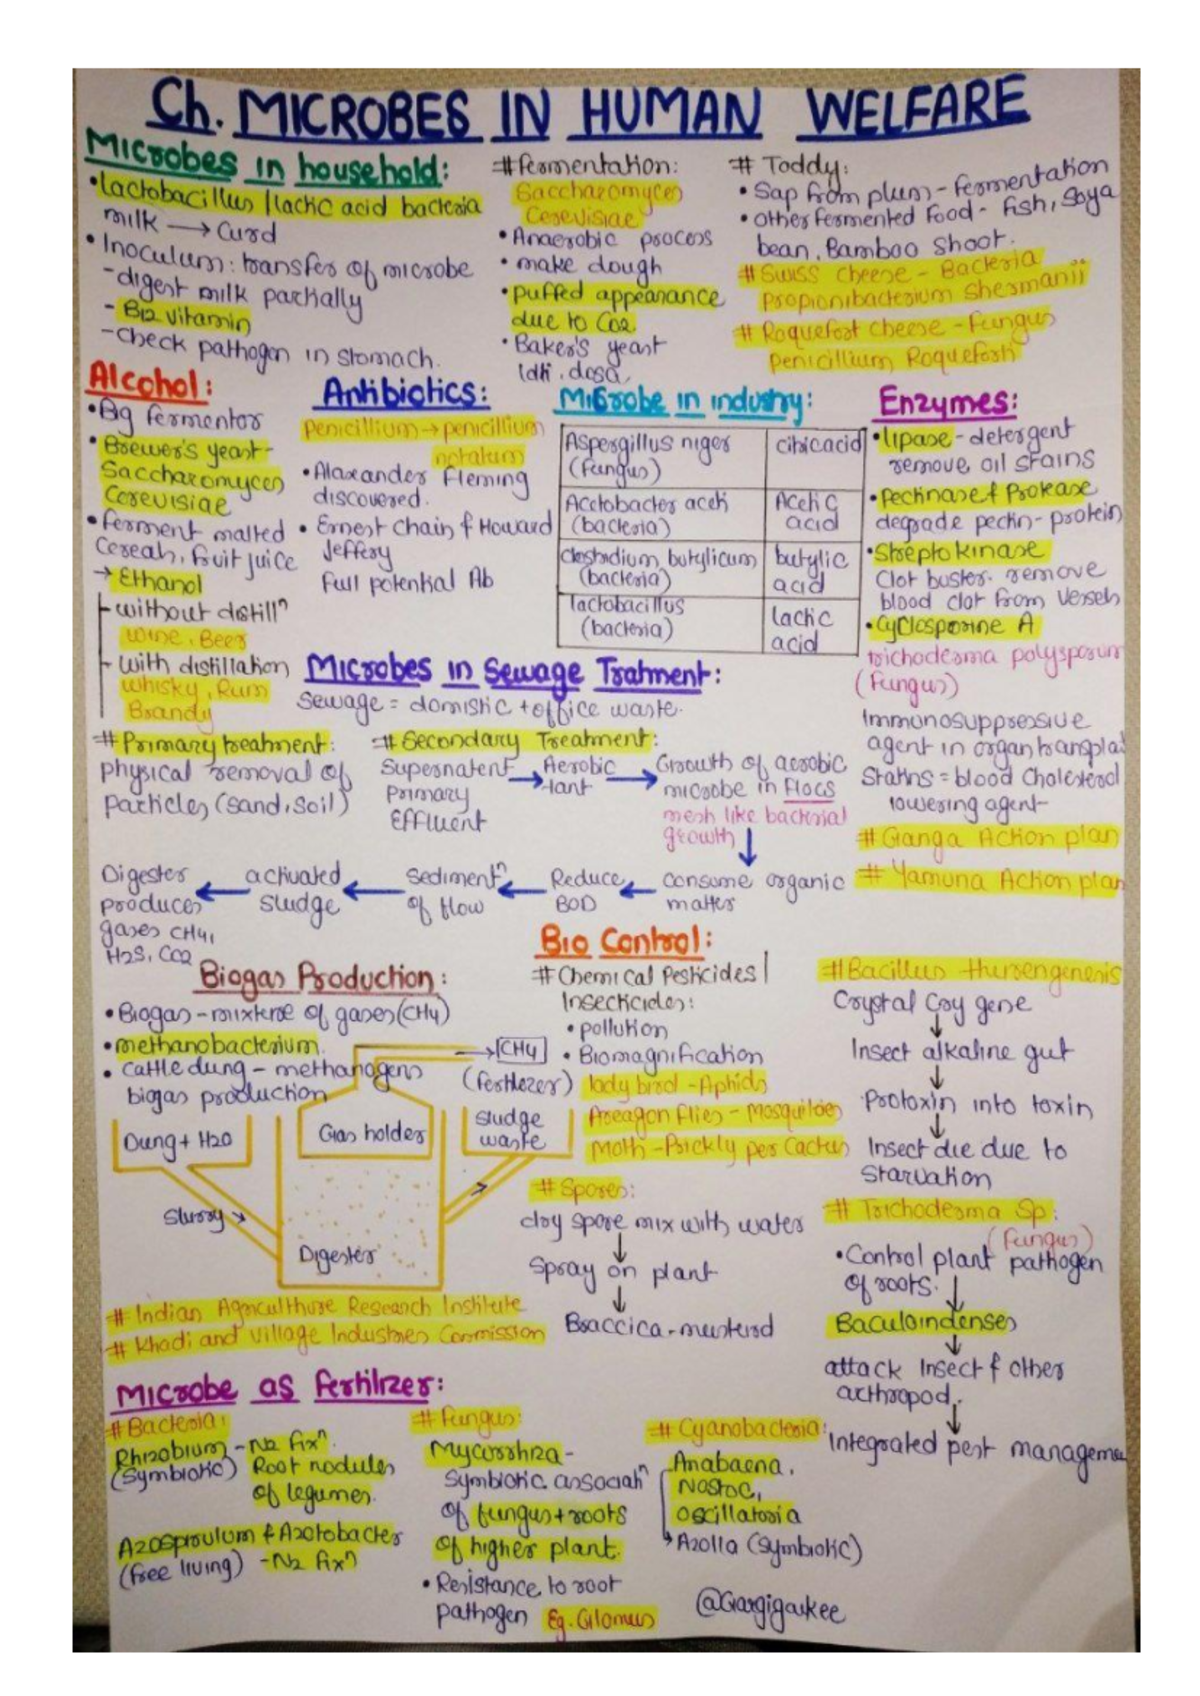 Ch. MICROBES IN HUMAN WELFARE
Microbes in household:
•Lactobacillus /lactic acid bacteria
milk → Curd
• Inoculum: transfer of microbe
-digest milk partially
- B12 vitamin
-check pathogen in stomach.
#fermentation:
Saccharomyces
Cerevisiae
• Anaerobic process
• make dough
• puffed appearance
due to CO2
• Baker's yeast
Idli, dosa,
# Toddy:
• Sap from plum - fermentation
• other fermented food - fish, Soya
bean, Bamboo shoot.
# Swiss cheese - Bacteria
Propionibacterium Shermanii
# Roquefort cheese - Fungus
penicillium Roqueforti
Alcohol:
•Big fermentor
• Brewer's yeast-
Saccharomyces
Cerevisiae
• ferment malted
Cereals, fruit juice
→ Ethanol
-without distillⁿ
Wine, Beer
- with distillation
Whisky, Rum
Brandy
Antibiotics:
Penicillium→penicillium
notatum
• Alaxander Fleming
discovered.
• Ernest Chain & Howard
Jeffery
Full potential Ab
Microbe in industry:
Aspergillus niger citric acid
(fungus)
Acetobacter aceti Acetic
(bacteria) acid
clostridium butylicum butylic
(bacteria) acid
lactobacillus lactic
(bacteria) acid
Enzymes:
•lipase - detergent
remove oil stains
•Pectinase & Protease
degrade pectin - protein
•Streptokinase
Clot buster. remove
blood clot from vessels
•Cyclosporine A
trichoderma polysporum
(Fungus)
Immunosuppressive
agent in organ transpla
Statins = blood Cholesterol
lowering agent-
# Ganga Action plan
# Yamuna Action plan
Microbes in Sewage Tratment:
Sewage = domistic + office waste.
# Primary treatment:
physical removal of
particles (sand, soil)
# Secondary Treatment:
Supernatent → Aerobic → Growth of aerobic
Primary tant microbe in flocs
Effluent mesh like bacterial
growth ↓
Digester ← activated ← Sedimentⁿ ← Reduce ← consume organic
produces sludge of flow BOD matter
gases CH4,
H2S, CO2
Biogas Production:
• Biogas - mixture of gases (CH4)
•methanobacterium.
• cattle dung - methanogens
biogas production
→ CH4
(fertilezer)
Dung + H2O
Gas holder
sludge
waste
Slurry →
Digester
# Indian Agriculthure Research Institute
# Khadi and Village Industries Commission
Bio Control:
# Chemical Pesticides |
Insecticides:
• pollution
• Biomagnification
lady bird - Aphids
Areagon flies - Mosquitoes
Moth - Prickly per Cactus
# Spores:
dry spore mix with water
↓
Spray on plant
↓
Braccica - musterd
# Bacillus thurengenesis
Crystal Cry gene
↓
Insect alkaline gut
↓
Protoxin into toxin
↓
Insect die due to
starvation
# Trichoderma Sp:
(Fungus)
•Control plant pathogen
of roots. ↓
Baculoindenses
↓
attack Insect & other
arthropod. ↓
Integrated pest manageme
Microbe as fertilizer:
# Bacteria:
Rhizobium - N2 fixⁿ.
(Symbiotic) Root nodules
of legumes.
Azosprirulum & Azotobacter
(free living) -N2 fixⁿ
# Fungus:
Mycorrhiza -
Symbiotic associatⁿ
of fungus + roots
of higher plant.
• Resistance to root
pathogen Eg. Glomus
# Cyanobacteria:
Anabaena,
Nostoc,
oscillatoria
→ Azolla (Symbiotic)
@Gargigaikee